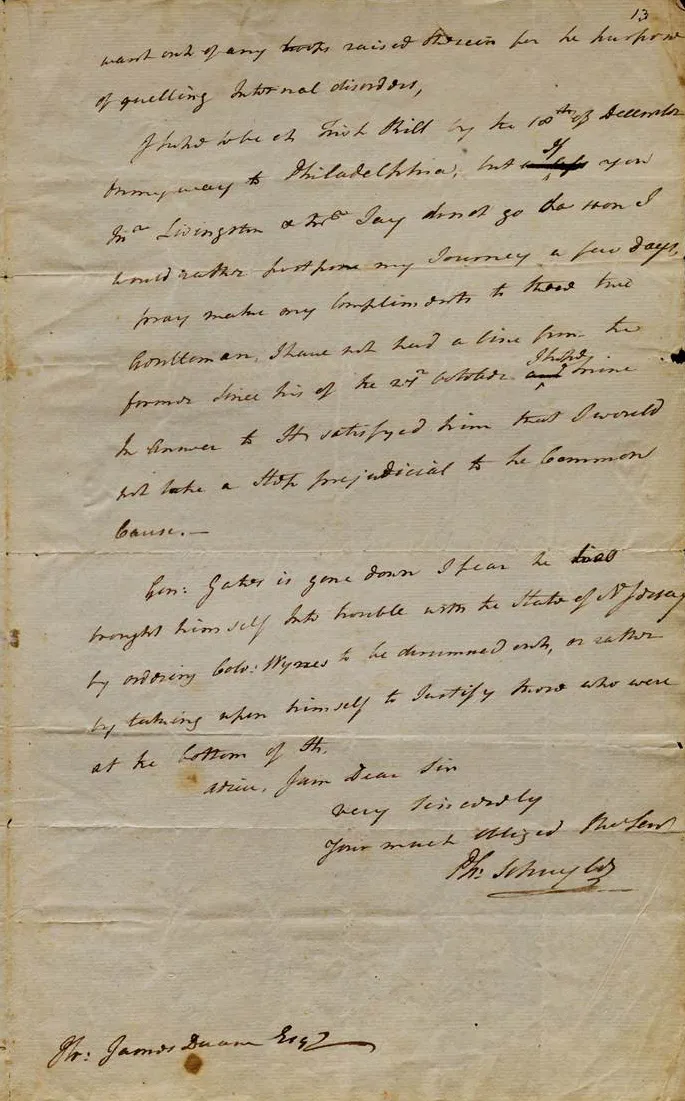 13
want out of any troops raised therein for the purpose
of quelling Internal disorders,
I hope to be at Fish Kill by the 18th of December
on my way to Philadelphia, but If you
Mr Livingston & Mr Jay do not go so soon I
would rather postpone my Journey a few days,
pray make my Compliments to those two
Gentlemen, I have not had a line from the
former since his of the October I hope mine
In Answer to It satisfyed him that I would
not take a Step prejudicial to the Common
Cause.—
Gen: Gates is gone down I fear he has
brought himself Into trouble with the State of N Jersey
by ordering Colo: to be drummed out, or rather
by taking upon himself to Justify those who were
at the bottom of It.
adieu, I am Dear Sir
very Sincerely
Your much Obliged Hue Servt
Ph: Schuyler
Hr: James Duane Esqr